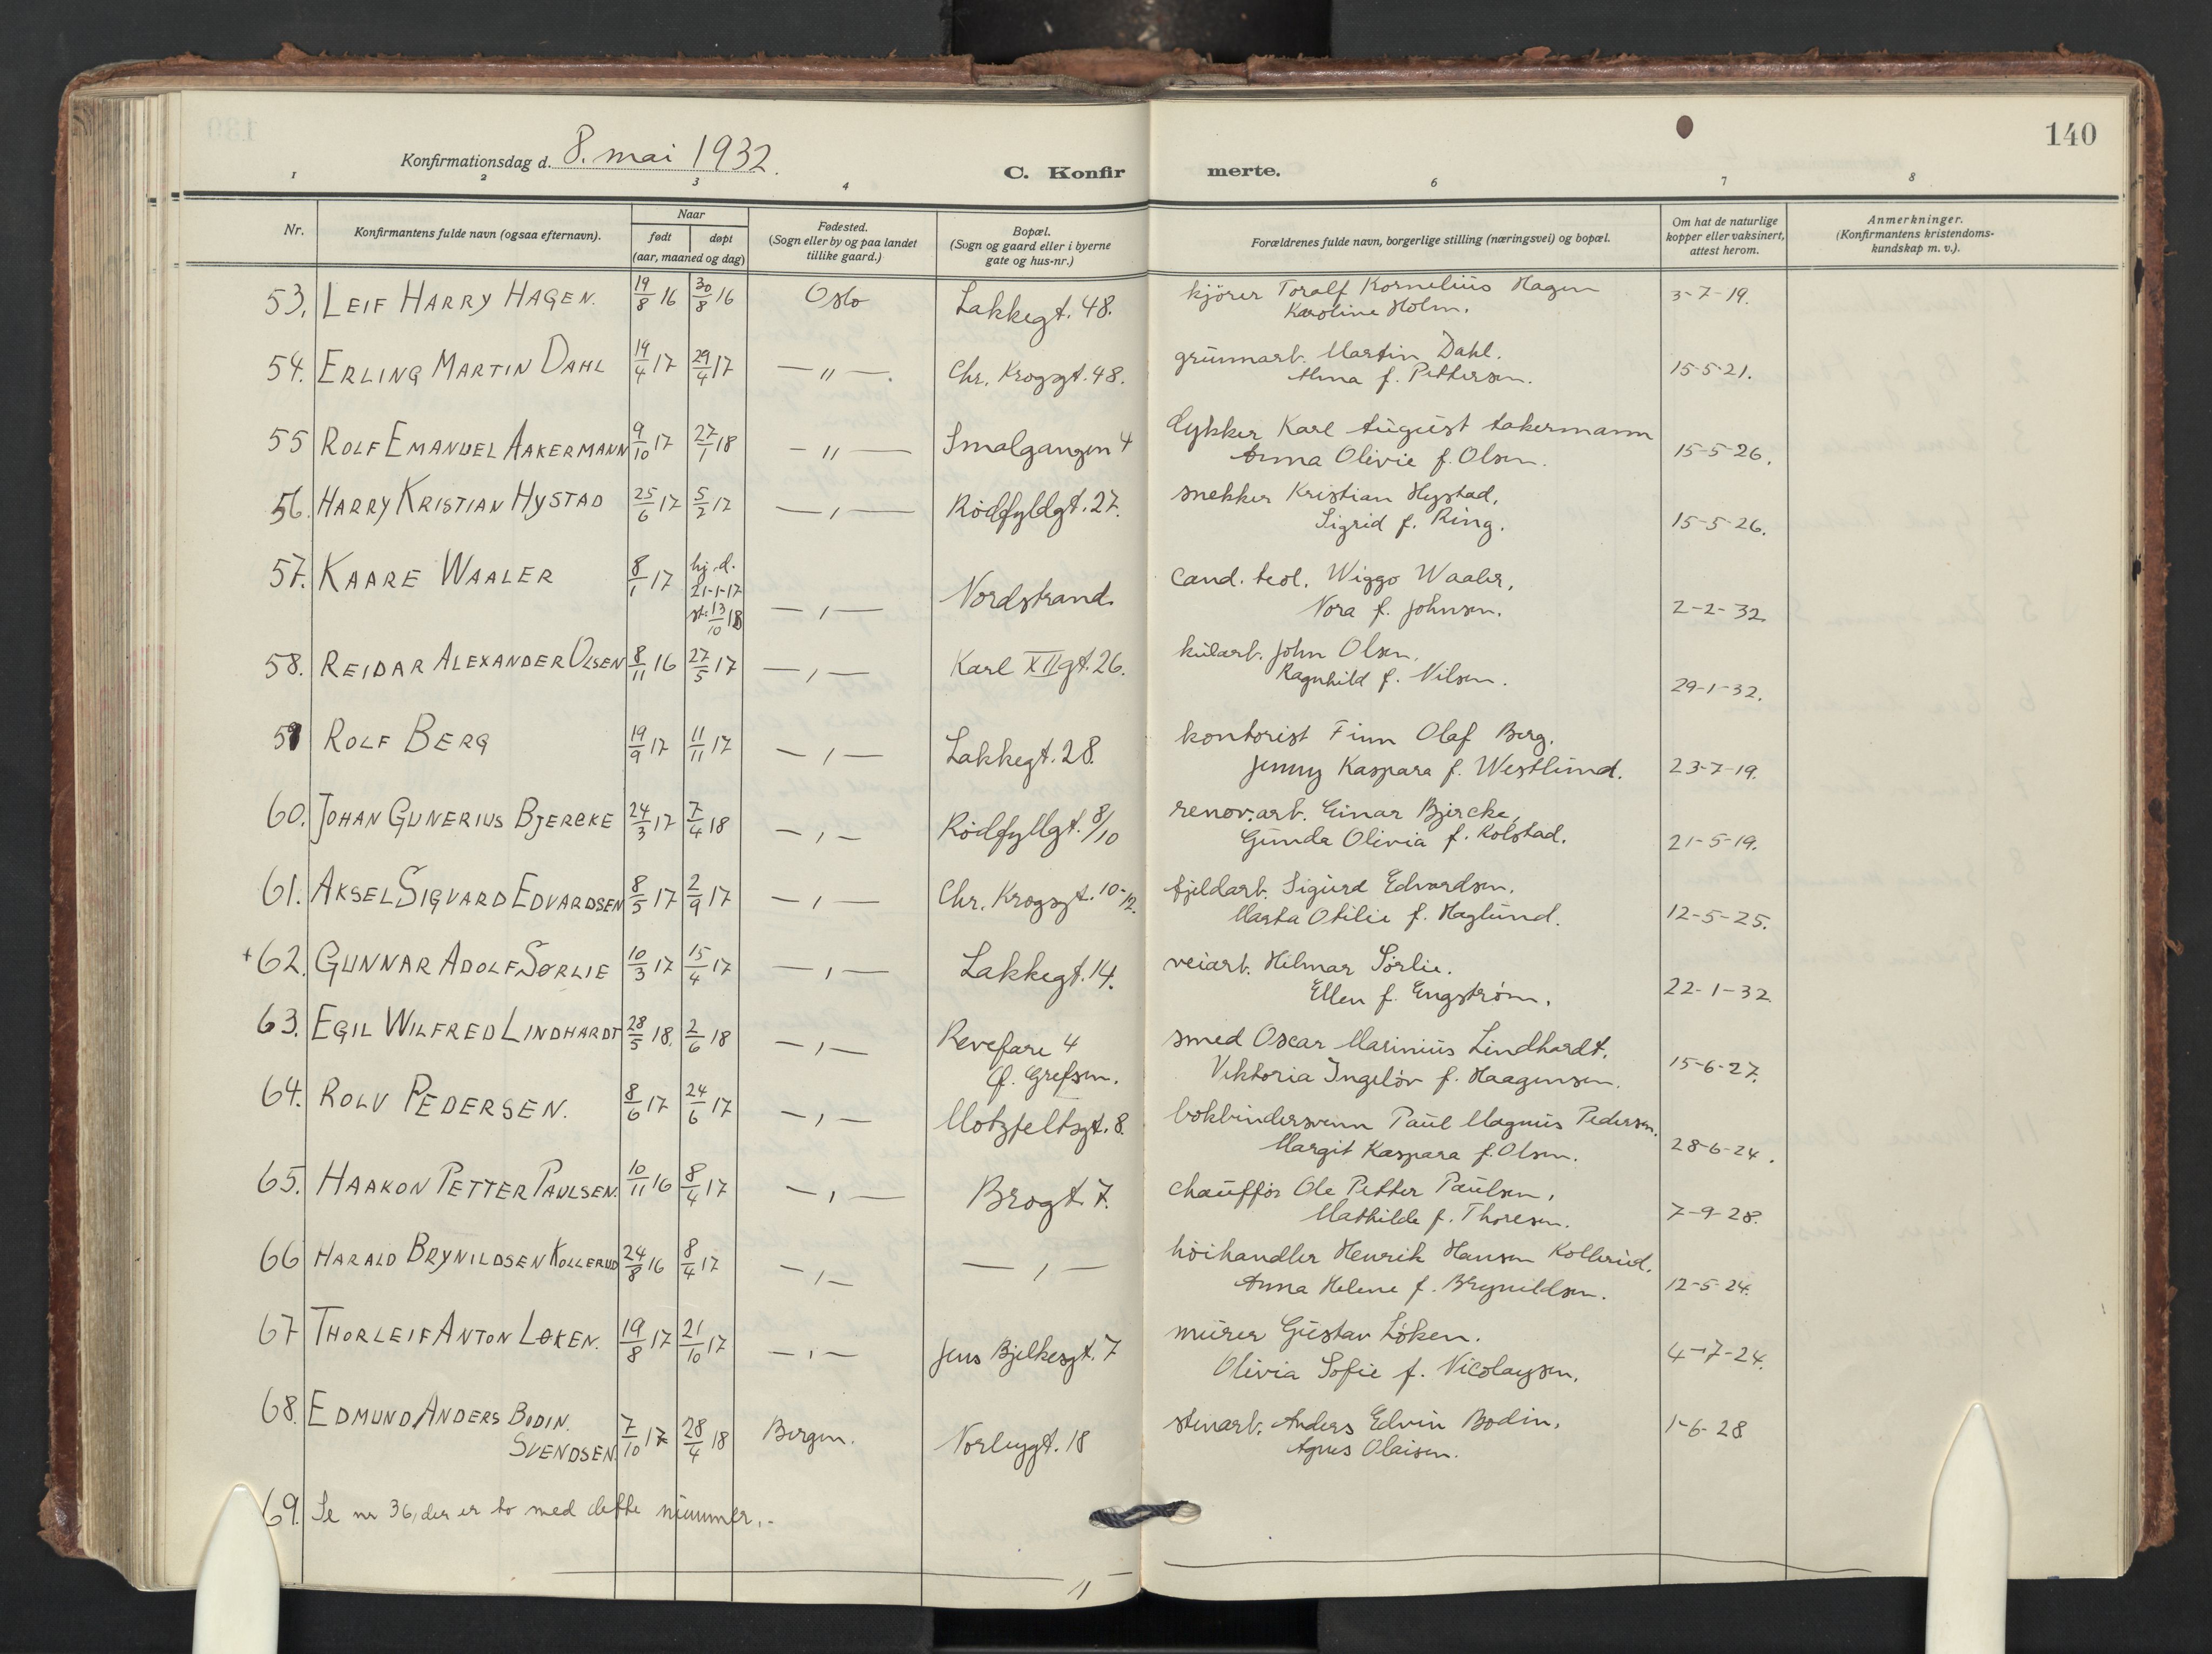 140
Konfirmationsdag d. 8. mai 1932.
C. Konfir merte.
1 2 3 4 6 7 8
Nr.
Konfirmantens fulde navn (ogsaa efternavn).
Naar
født døpt
(aar, maaned og dag)
Fødested.
(Sogn eller by og paa landet
tillike gaard.)
Bopæl.
(Sogn og gaard eller i byerne
gate og hus-nr.)
Forældrenes fulde navn, borgerlige stilling (næringsvei) og bopæl.
Om hat de naturlige
kopper eller vaksinert,
attest herom.
Anmerkninger.
(Konfirmantens kristendoms-
kundskap m. v.).
53. LEIF HARRY HAGEN. 19/8 16 30/8 16 Oslo Lakkegt. 48. kjörer Toralf Kornelius Hagen 3-7-19.
Karoline Holm.
54. ERLING MARTIN DAHL 19/4 17 29/4 17 — " —. Chr. Krogsgt. 48. grunnarb. Martin Dahl. 15-5-21.
Alma f. Pettersen.
55 ROLF EMANUEL AAKERMANN 9/10 17 27/1 18 — " — Smalgangen 4 dykker Karl August Aakermann 15-5-26.
Anna Olivie f. Olsen.
56. HARRY KRISTIAN HYSTAD 25/6 17 5/2 17 — , — Rödfyldgt. 27. snekker Kristian Hystad, 15-5-26.
Sigrid f. Ring.
57. KAARE WAALER 8/1 17 hj. d. 21-1-17 st: 13/10 18 — , — Nordstrand. cand. teol. Wiggo Waaler, 2-2-32.
Nora f. Johnsen.
58. REIDAR ALEXANDER OLSEN 8/11 16 27/5 17 — , — Karl XII gt. 26. kularb. John Olsen, 29-1-32.
Ragnhild f. Nilsen.
59 ROLF BERG 19/9 17 11/11 17 — , — Lakkegt. 28. kontorist Finn Olaf Berg. 23-7-19.
Jenny Kaspara f. Westlund.
60. JOHAN GUNERIUS BJERCKE 24/3 17 7/4 18 — , — Rödfyllgt. 8/10 renov.arb. Einar Bjercke, 21-5-19.
Gunda Olivia f. Rolstad.
61. AKSEL SIGVARD EDVARDSEN 8/5 17 2/9 17 — , — Chr. Krogsgt. 10-12. fjeldarb. Sigurd Edvardsen. 12-5-25.
Marta Otilie f. Haglund.
+ 62. GUNNAR ADOLF SØRLIE 10/3 17 15/4 17 — , — Lakkegt. 14. veiarb. Hilmar Sörlie. 22-1-32.
Ellen f. Engström.
63. EGIL WILFRED LINDHARDT 28/5 18. 2/6 18 — , — Revefare 4 smed Oscar Marinius Lindhardt. 15-6-27.
Ö. Grefsen. Viktoria Ingelöv f. Haagensen.
64. ROLV PEDERSEN. 8/6 17 24/6 17 — , — Motzfeltsgt. 8. bokbindersvenn Paul Magnus Pedersen. 28-6-24.
Margit Kaspara f. Olsen.
65. HAAKON PETTER PAULSEN. 10/11 16 8/4 17 — , — Brogt. 7. chaufför Ole Petter Paulsen, 7-9-28.
Mathilde f. Thoresen.
66 HARALD BRYNILDSEN KOLLERUD 24/8 16 8/4 17 — , — — , — höihandler Henrik Hansen Kollerud. 12-5-24.
Anna Helene f. Brynildsen.
67 THORLEIF ANTON LØKEN. 19/8 17 21/10 17 — , — Jens Bjelkesgt. 7 murer Gustav Löken. 4-7-24.
Olivia Sofie f. Nicolaysen.
68. EDMUND ANDERS BODIN. 7/10 17 28/4 18 Bergen. Norbygt. 18 stenarb. Anders Edvin Bodin, 1-6-28
SVENDSEN. Agnes Olaisen.
69. Se nr 36, der er to med dette nummer.-